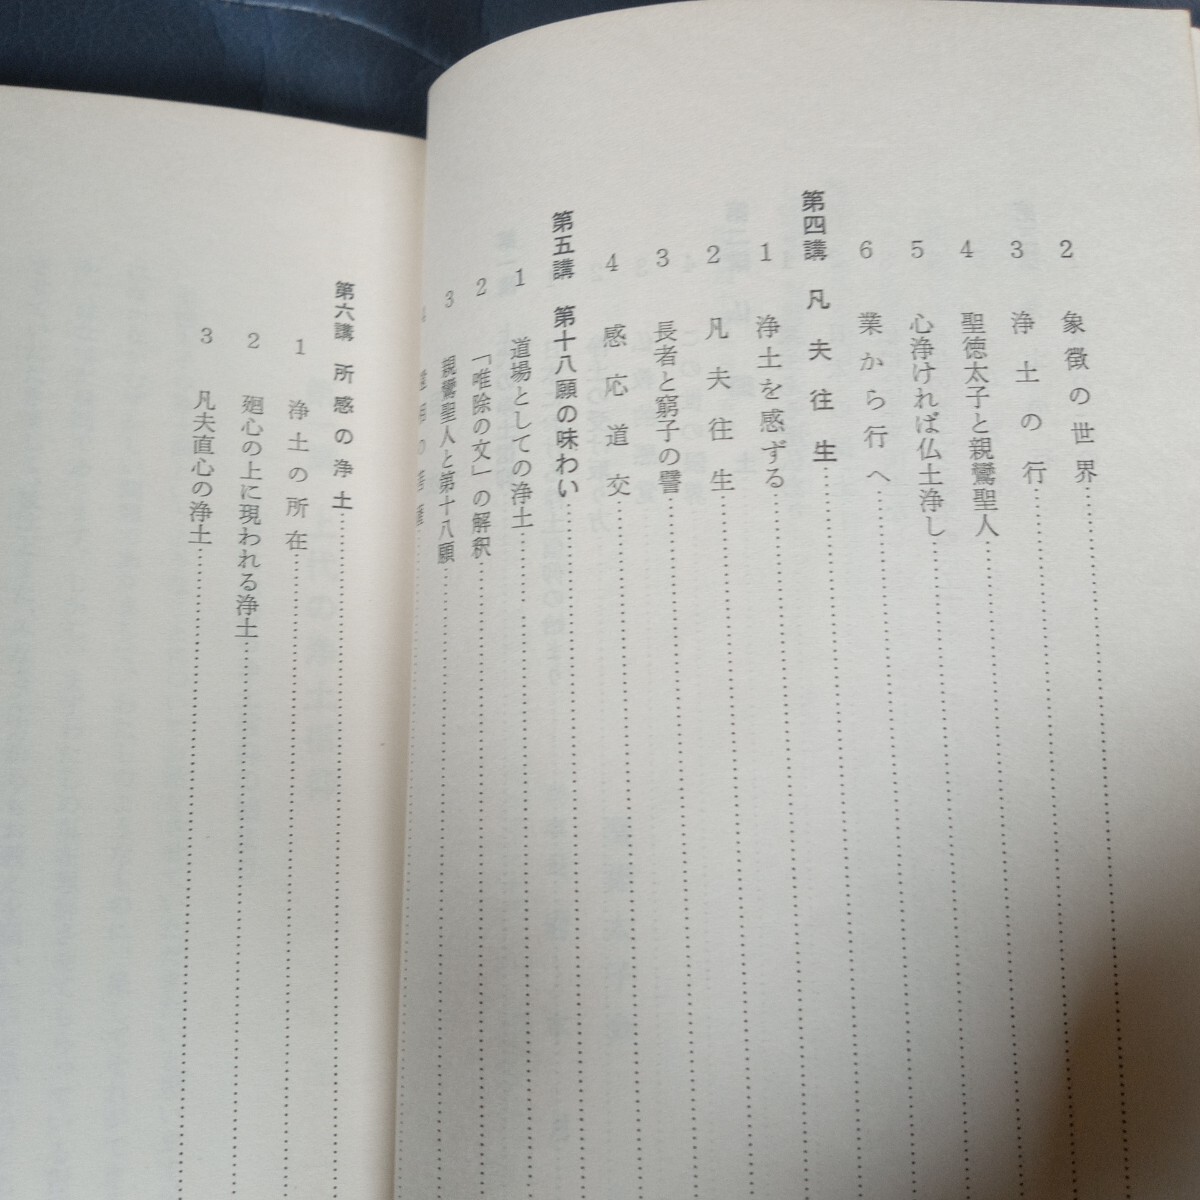 2 象徴の世界
3 浄土の行
4 聖徳太子と親鸞聖人
5 心浄ければ仏土浄し
6 業から行へ
第四講 凡夫往生
1 浄土を感ずる
2 凡夫往生
3 長者と窮子の譬
4 感応道交
第五講 第十八願の味わい
1 道場としての浄土
2 「唯除の文」の解釈
3 親鸞聖人と第十八願
4
第六講 所感の浄土
1 浄土の所在
2 廻心の上に現われる浄土
3 凡夫直心の浄土